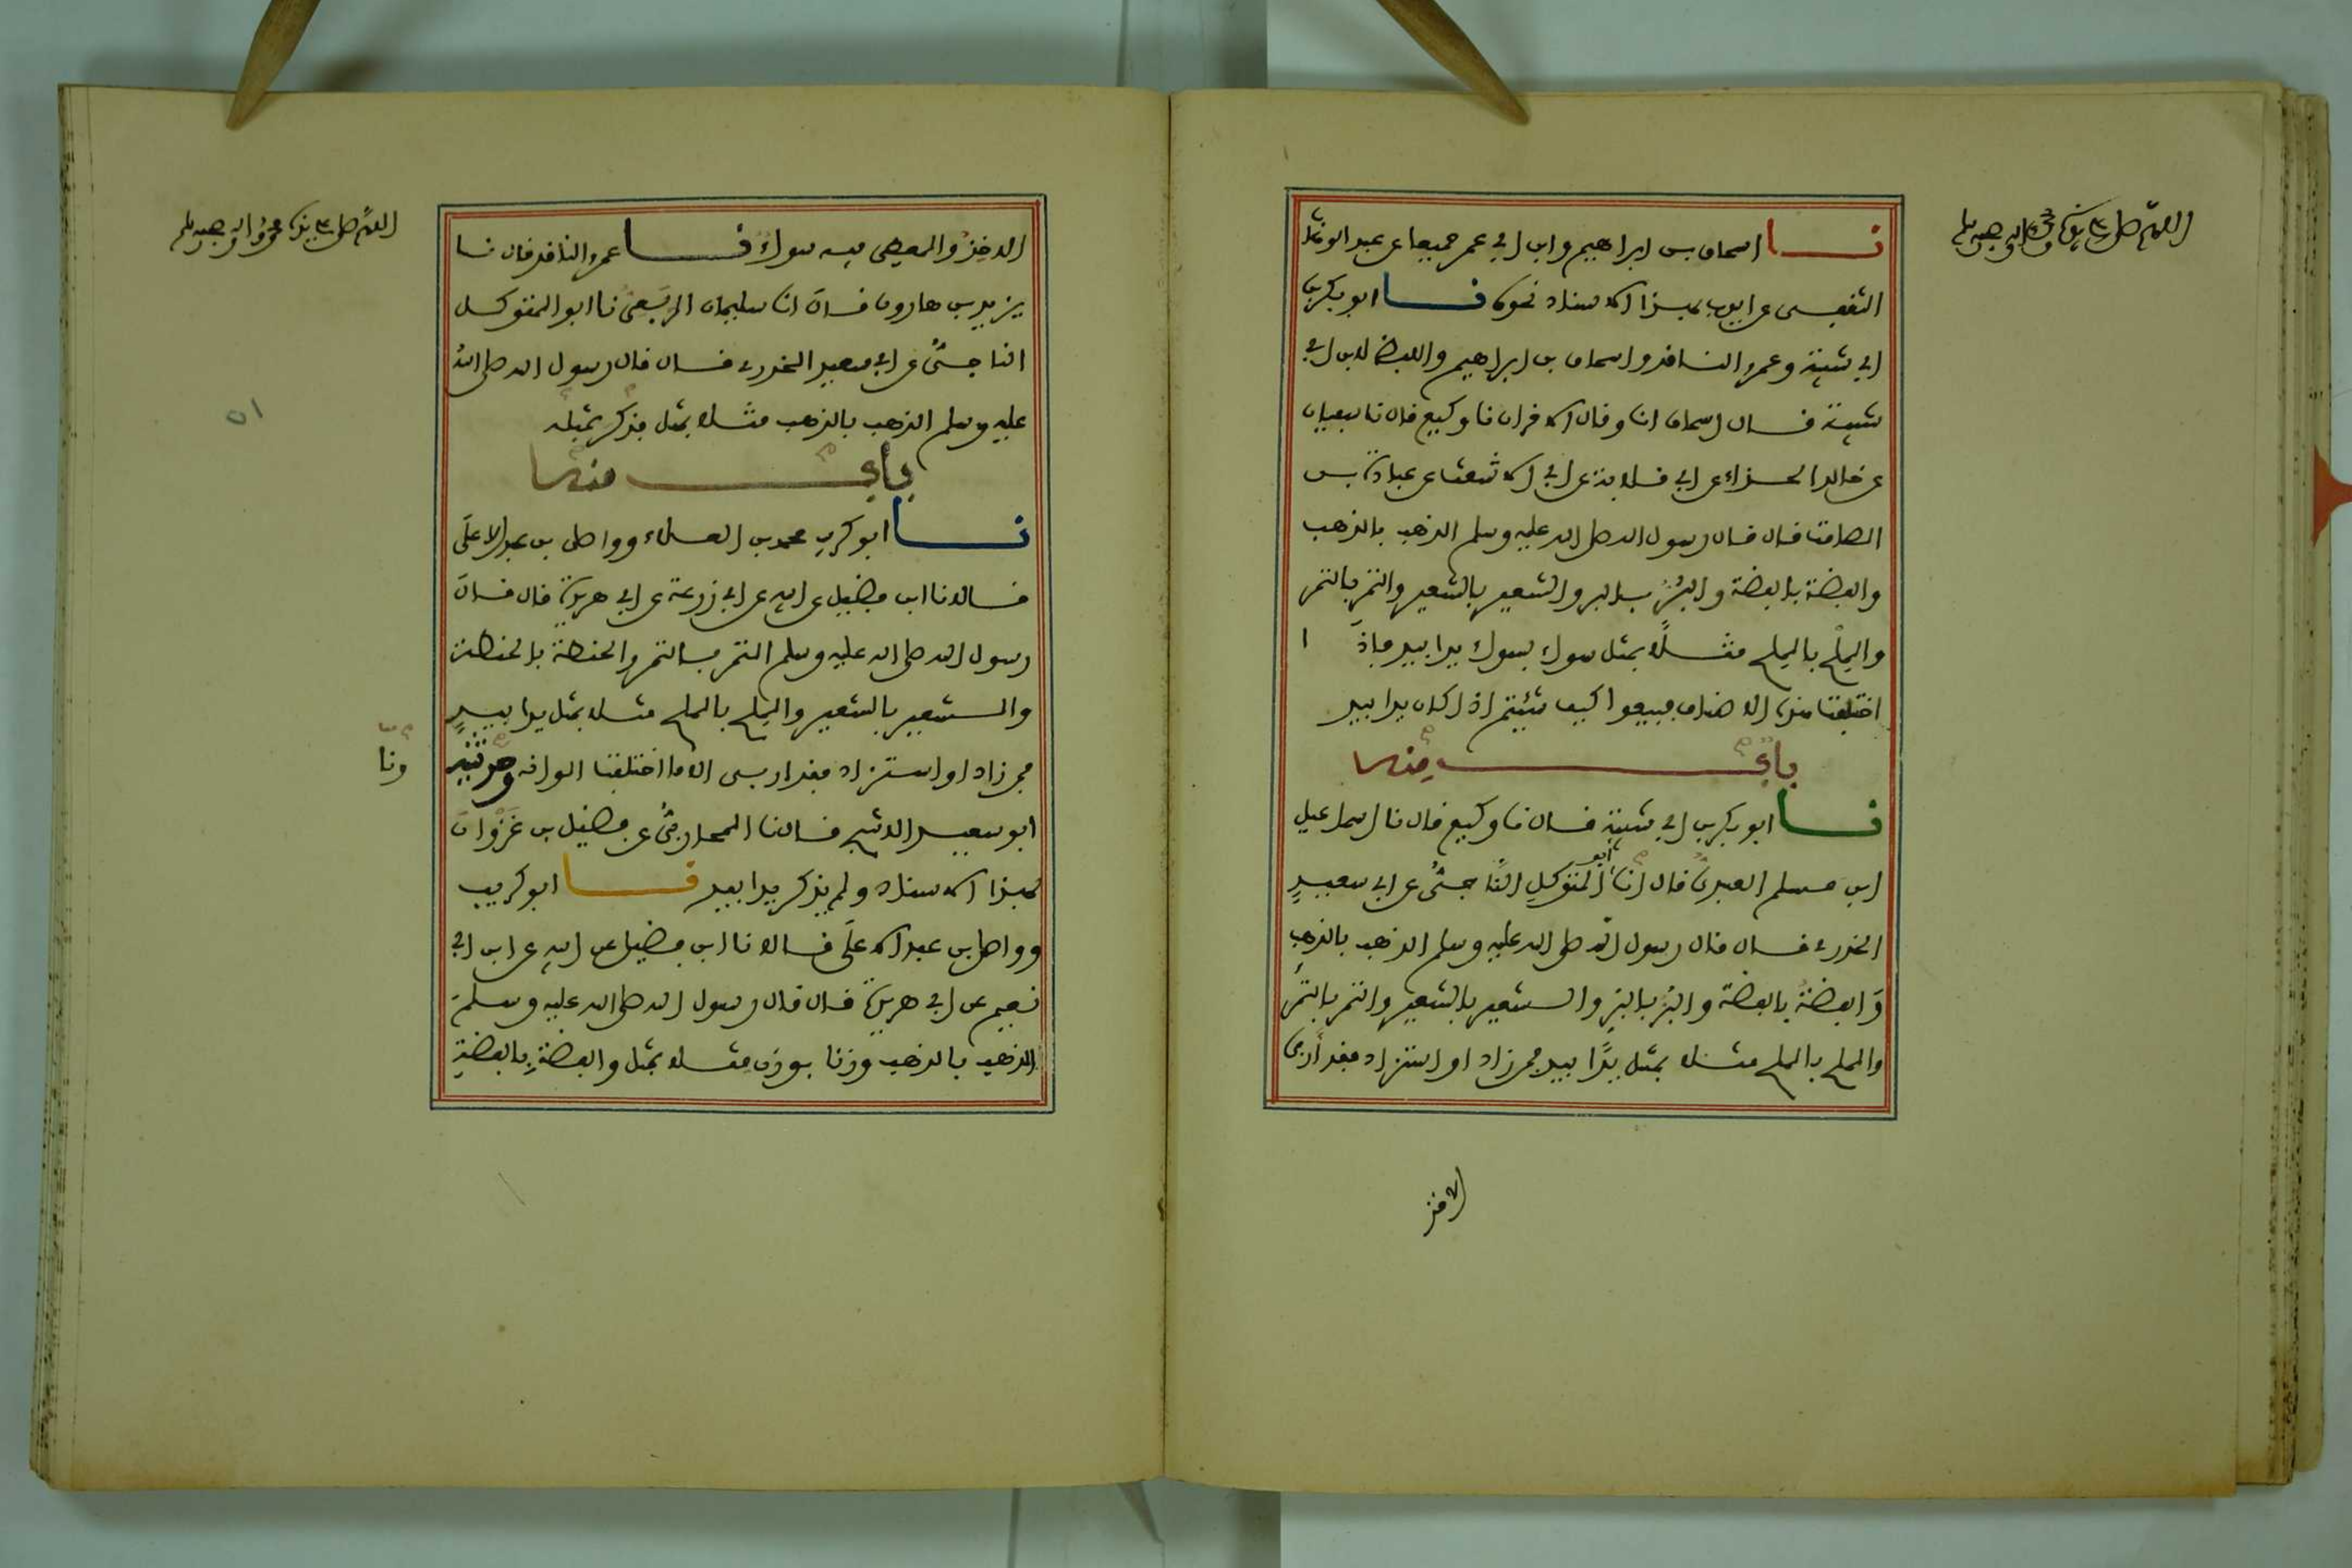 اللهم صل على سيدنا محمد واله وصحبه وسلم
نا اسحاق بن ابراهيم وابن ابي عمر جميعا عن عبد الوهاب
الثقفي عن ايوب بهذا الاسناد نحوه نا ابو بكر بن
ابي شيبة وعمرو الناقد واسحاق بن ابراهيم واللفظ لابن ابي
شيبة قال اسحاق انا وقال الاخران نا وكيع قال نا سفيان
عن خالد الحذاء عن ابي قلابة عن ابي الاشعث عن عبادة بن
الصامت قال قال رسول الله صلى الله عليه وسلم الذهب بالذهب
والفضة بالفضة والبُرُّ بالبر والشعير بالشعير والتمر بالتمر
والمِلْح بالملح مثلاً بمثل سواء بسواء يدا بيد فإذَا
اختلفت هذه الاصناف فبيعوا كيف شئتم اذا كان يدا بيد
بابٌ منه
نا ابو بكر بن ابي شيبة قال نا وكيع قال نا اسماعيل
ابن مسلم العبديُّ قال انا ابو المتوكلِ النَّاجيُّ عن ابي سعيدٍ
الخدري قال قال رسول الله صلى الله عليه وسلم الذهب بالذهب
وَالفضةُ بالفضة والبُرُّ بالبرِّ والشعير بالشعير والتمر بالتمر
والملح بالملح مثلا بمثل يدًا بيد فمن زاد او استزاد فقد أربى
الاخذ
اللهم صل على سيدنا محمد واله وصحبه وسلم
الاخذُ والمعطي فيه سواءٌ نا عمرو الناقد قال نا
يزيد بن هارون قال انا سليمان الرَّبَعيُّ نا ابو المتوكل
الناجيُّ عن ابي سعيد الخدري قال قال رسول الله صلى الله
عليه وسلم الذهب بالذهب مثلا بمثل فذكر بمثله
بابٌ منه
نا ابو كريب محمد بن العلاء وواصل بن عبد الاعلَى
قالا نا ابن فضيل عن ابيه عن ابي زرعة عن ابي هريرة قال قال
رسول الله صلى الله عليه وسلم التمر بالتمر والحنطة بالحنطة
والشعير بالشعير والمِلح بالملح مثلا بمثل يدا بيدٍ
فمن زاد او استزاد فقد اربى الا ما اختلفت الوانه وحدثنيه
ونا
ابو سعيد الاشج قال نا المحاربيُّ عن فضيل بن غَزْوَان
بهذا الاسناد ولم يذكر يدا بيد نا ابو كريب
وواصل بن عبد الاعلَى قالا نا ابن فضيل عن ابيه عن ابن ابي
نعيم عن ابي هريرة قال قال رسول الله صلى الله عليه وسلم
الذهب بالذهب وزنا بوزن مثلا بمثل والفضةِ بالفضةِ